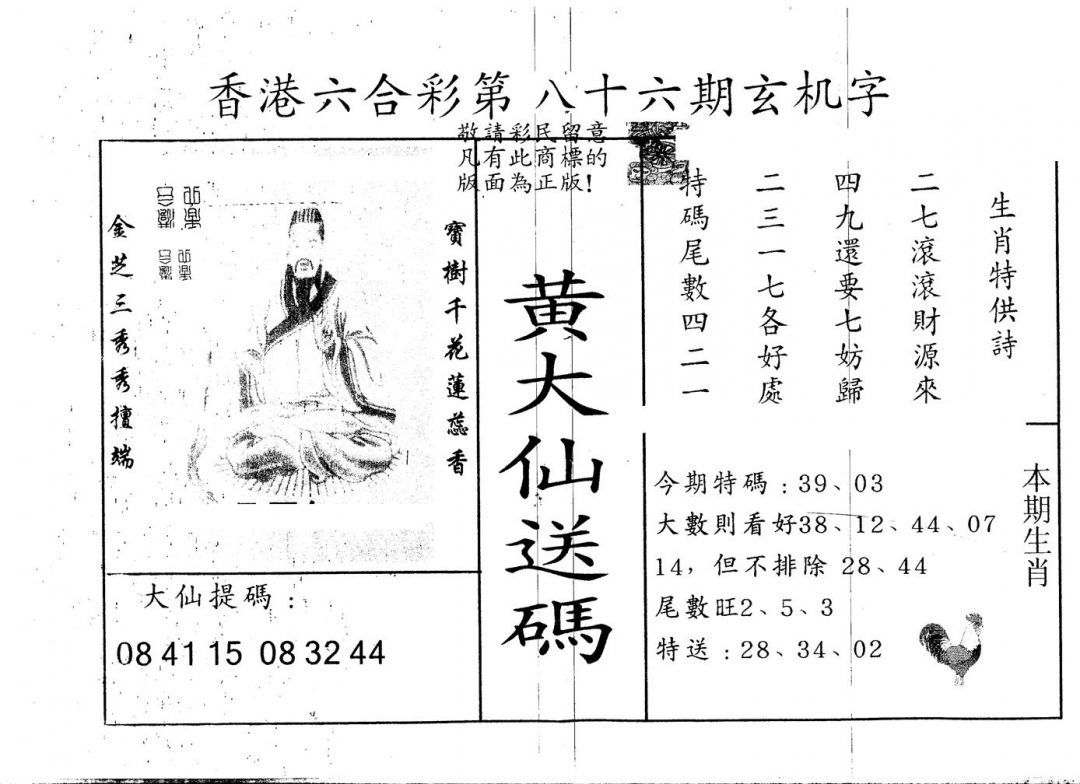 香港六合彩第八十六期玄机字
敬請彩民留意
凡有此商標的
版面為正版!
寶樹千花蓮蕊香
金芝三秀秀擅端
黄大仙送碼
生肖特供詩
二七滾滾財源來
四九還要七妨歸
二三一七各好處
特碼尾數四二一
大仙提碼：
08 41 15 08 32 44
今期特碼：39、03
大數則看好38、12、44、07
14，但不排除 28、44
尾數旺2、5、3
特送：28、34、02
本期生肖